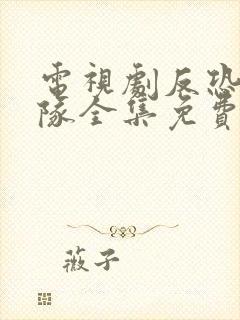 電視劇反恐
隊全集免費
薇子